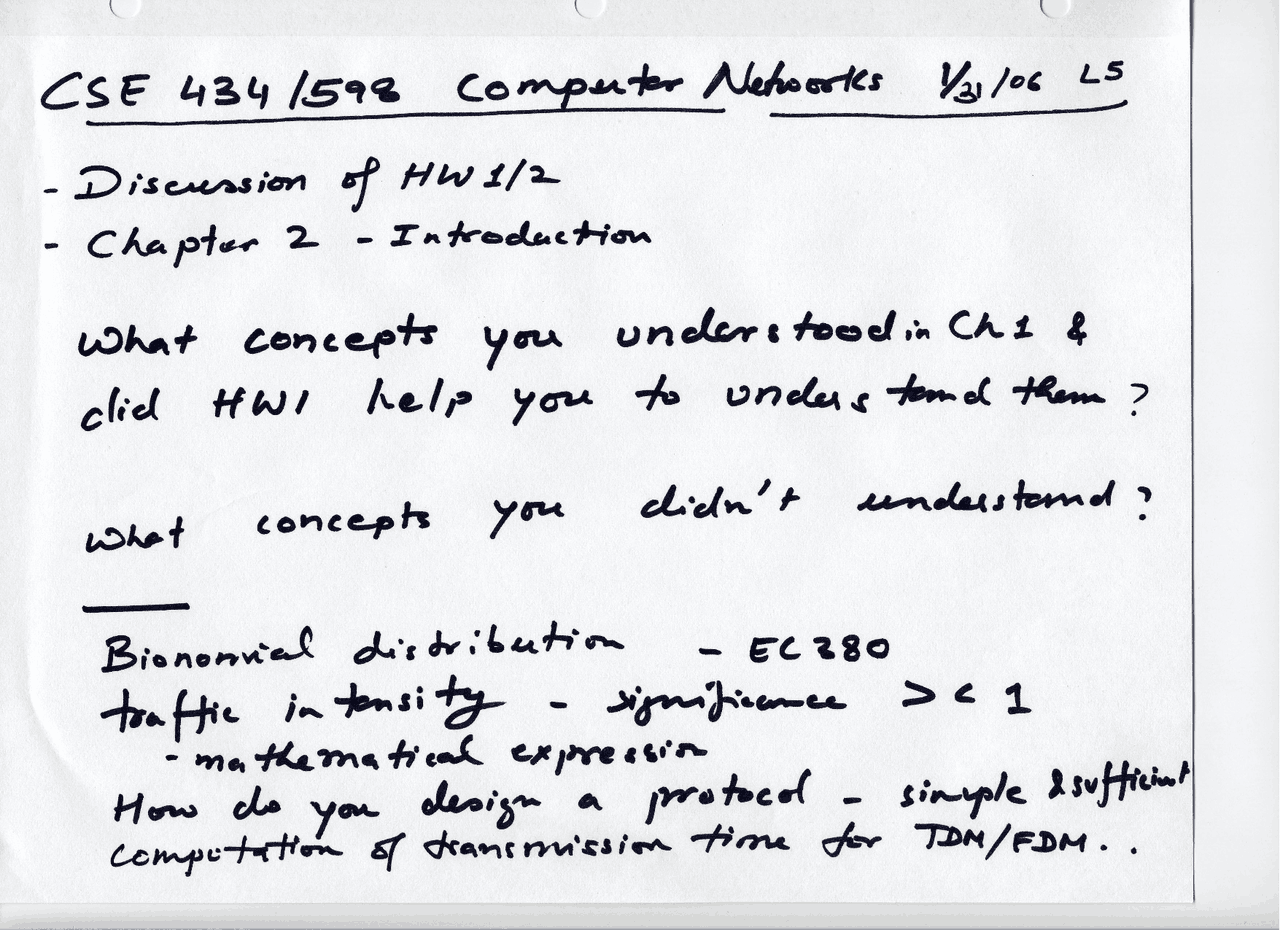 CSE 434/598 Computer Networks 1/31/06 L5
- Discussion of HW 1/2
- Chapter 2 - Introduction
What concepts you understood in Ch 1 &
did HW1 help you to understand them ?
What concepts you didn't understand ?
Bionomial distribution - EC 380
traffic intensity - significance > < 1
- mathematical expression
How do you design a protocol - simple & sufficient
Computation of transmission time for TDM/FDM . .